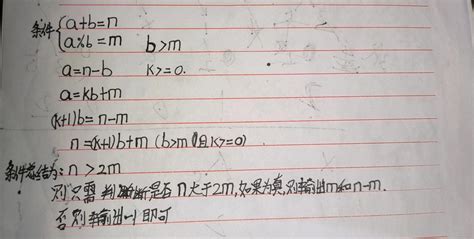 条件{a+b=n
a%b=m b>m
a=n-b k>=0.
a=kb+m
(k+1)b=n-m
n=(k+1)b+m (b>m 且k>=0)
条件总结为: n>2m
则只需判断是否n大于2m,如果为真,则输出m和n-m.
否则输出-1即可